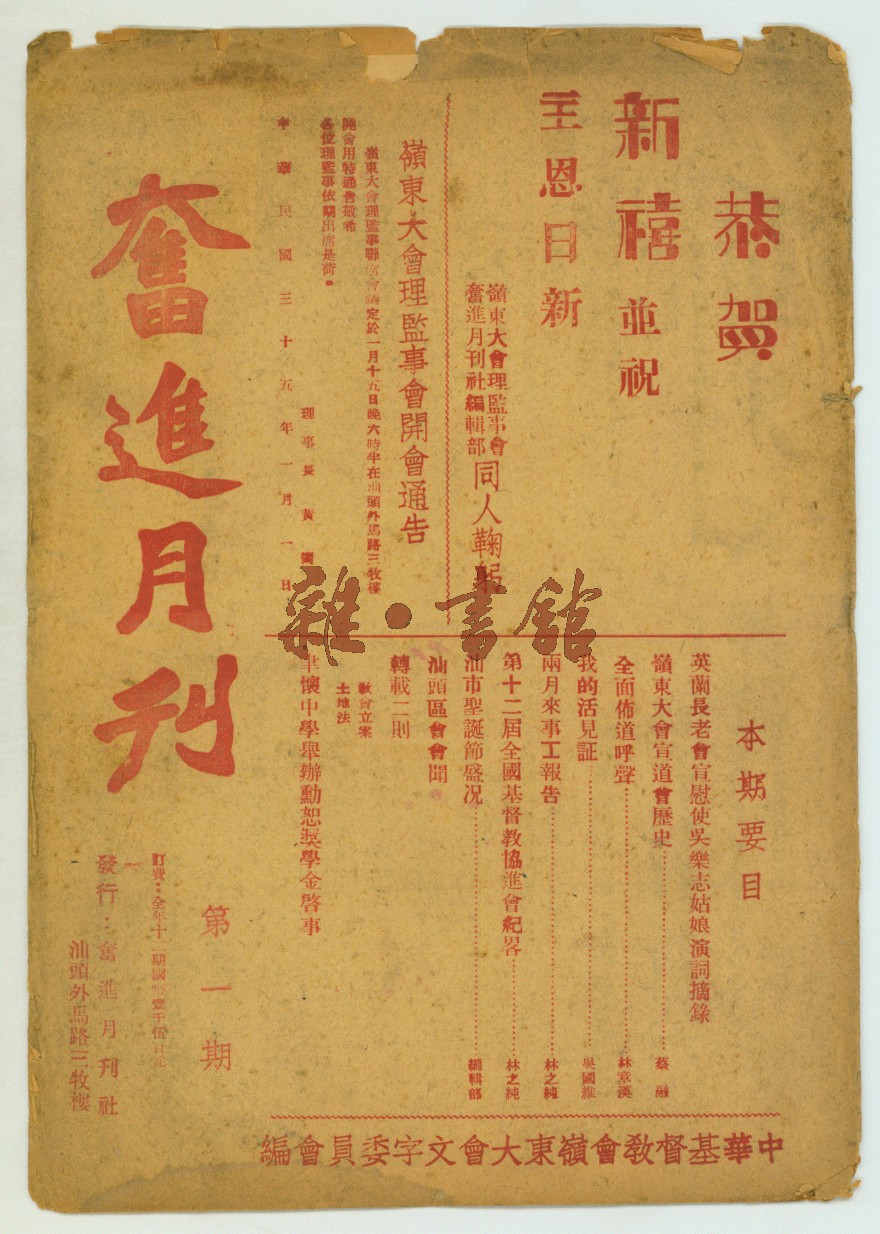 恭賀
新禧並祝
主恩日新
嶺東大會理監事會
奮進月刊社編輯部
同人鞠躬
嶺東大會理監事會開會通告
嶺東大會理監事聯席會議定於一月十五日晚六時半在汕頭外馬路三牧樓
開會用特通告敬希
各位理監事依期出席是荷。
理事長黃
中華民國三十五年一月一日
本期要目
英蘭長老會宣慰使吳樂志姑娘演詞摘錄
嶺東大會宣道會歷史……蔡融
全面佈道呼聲……林章漢
我的活見証……吳國維
兩月來事工報告……林之純
第十二屆全國基督教協進會紀畧……林之純
汕市聖誕節盛况……編輯部
汕頭區會會聞
轉載二則
教會立案
土地法
聿懷中學舉辦勳恕獎學金啓事
奮進月刊
第一期
訂費：全年十二期國幣壹千伍百元
發行：奮進月刊社
汕頭外馬路三牧樓
中華基督教會嶺東大會文字委員會編
雜·書館